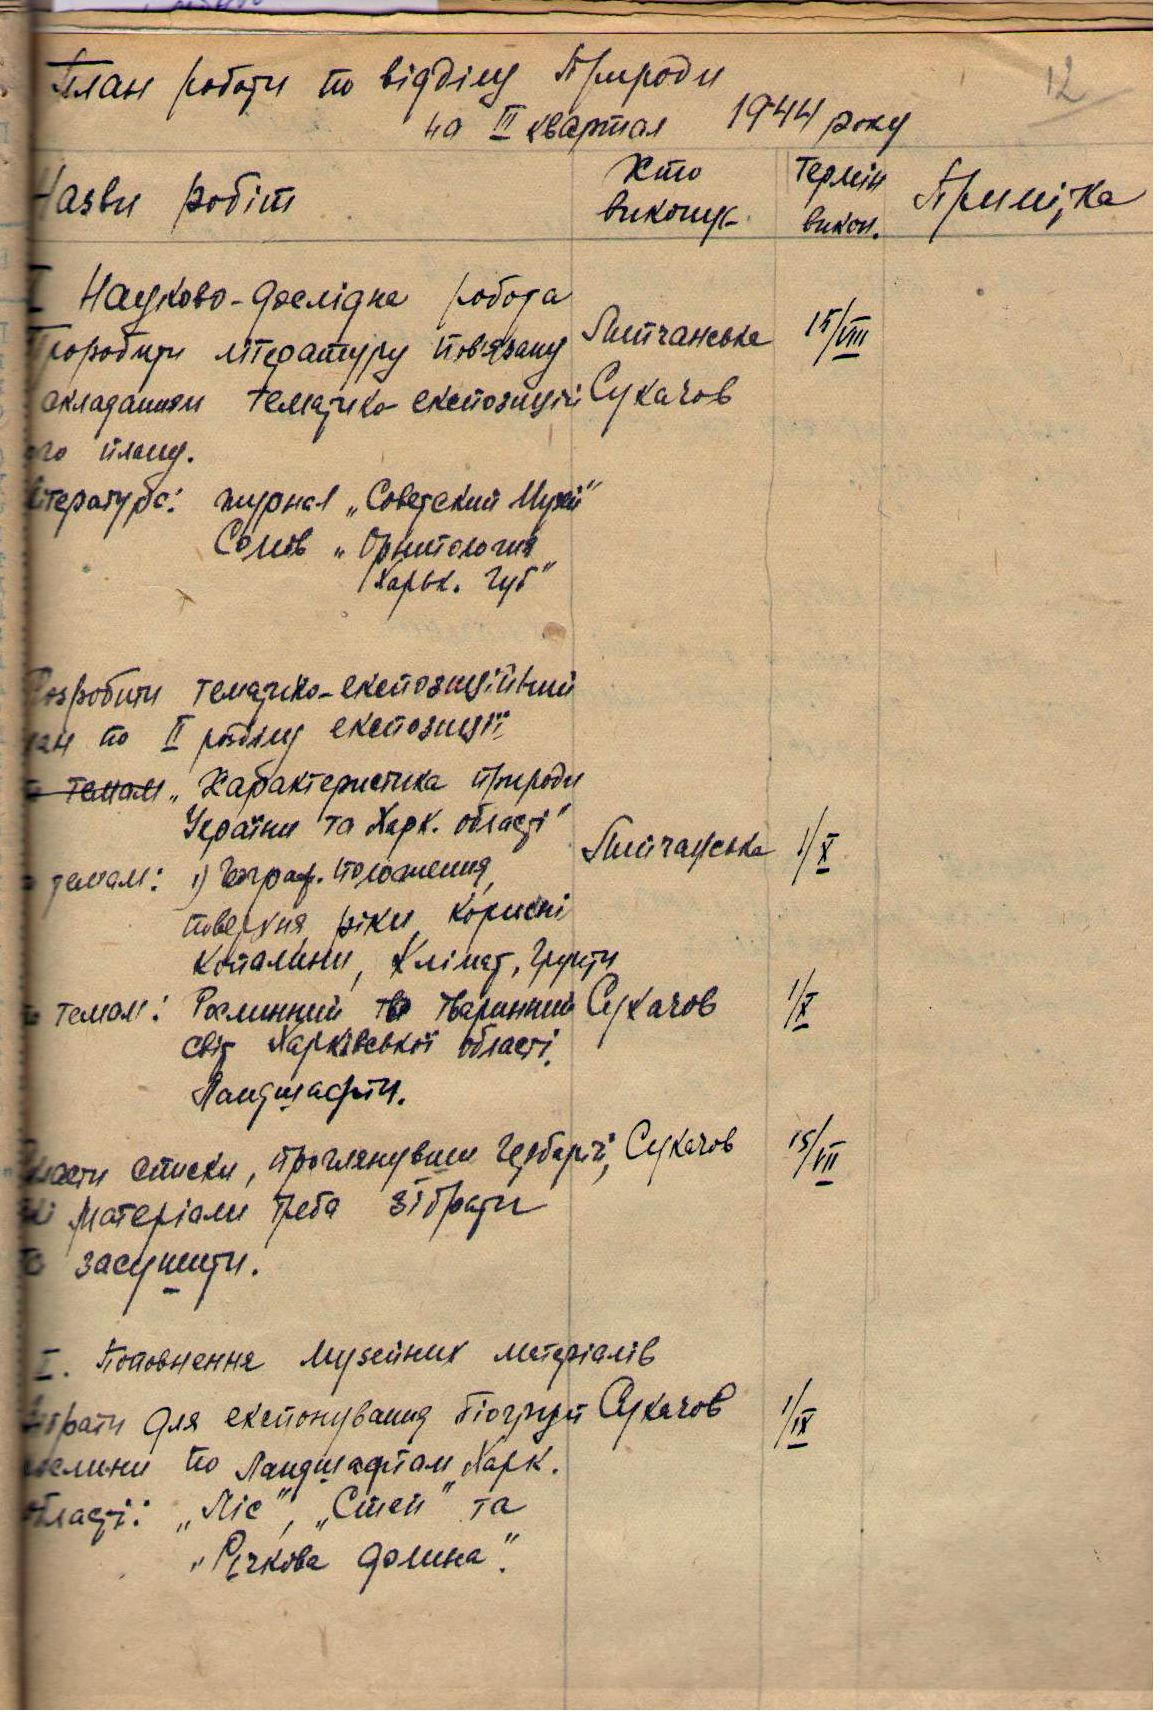 12
План роботи по відділу Природи
на III квартал 1944 року
Назви робіт
Хто викону-
Термін викон.
Примітка
I Науково-дослідна робота
Проробити літературу пов'язану
Липчанська 15/VIII
складанням тематико експозицій
Сукачов
ого плану.
Література: журнал „Советский Музей"
Сомов „Орнитология
Харьк. губ"
Розробити тематико-експозиційний
лан по II розділу експозиції
по темам „Характеристика природи
України та Харк. області"
Липчанська 1/X
темам: 1) Географ. положення,
поверхня ріки, корисні
копалини, клімат, грунти
по темам: Рослинний та тваринний Сукачов 1/X
світ Харківської області.
Ландшафти.
Скласти списки, проглянувши гербарій, Сукачов 15/VII
які матеріали треба зібрати
та засушити.
I. Поповнення музейних матеріалів
Зібрати для експонування біогруп Сукачов 1/IX
рослини по ландшафтам Харк.
області: „Ліс", „Степ" та
„Річкова долина".